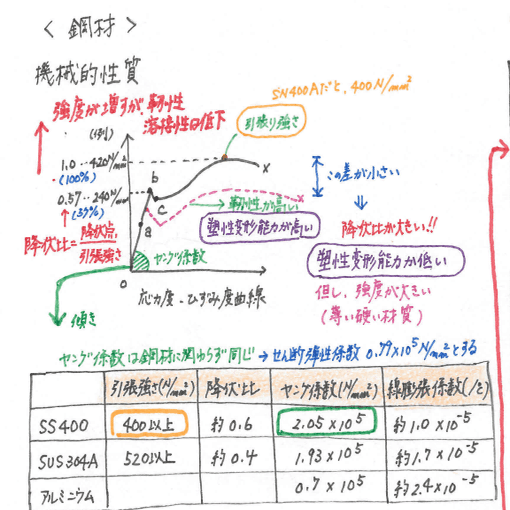 <鋼材>
機械的性質
SN400Aだと、400N/mm²
強度が増すが、靭性
溶接性は低下
引張り強さ
(例)
1.0 … 420N/mm²
(100%)
0.57 … 240N/mm²
(57%)
b
c
a
x
x
この差が小さい
靭性が高い
塑性変形能力が高い
降伏比が大きい!!
降伏比=降伏点/引張強さ
ヤング係数
塑性変形能力が低い
0
応力度-ひずみ度曲線
但し、強度が大きい
傾き
ヤング係数は鋼材に関わらず同じ → せん断弾性係数 0.79×10⁵N/mm²とする
引張強さ(N/mm²) 降伏比 ヤング係数(N/mm²) 線膨張係数(/℃)
SS400 400以上 約0.6 2.05×10⁵ 約1.0×10⁻⁵
SUS304A 520以上 約0.4 1.93×10⁵ 約1.7×10⁻⁵
アルミニウム 0.7×10⁵ 約2.4×10⁻⁵